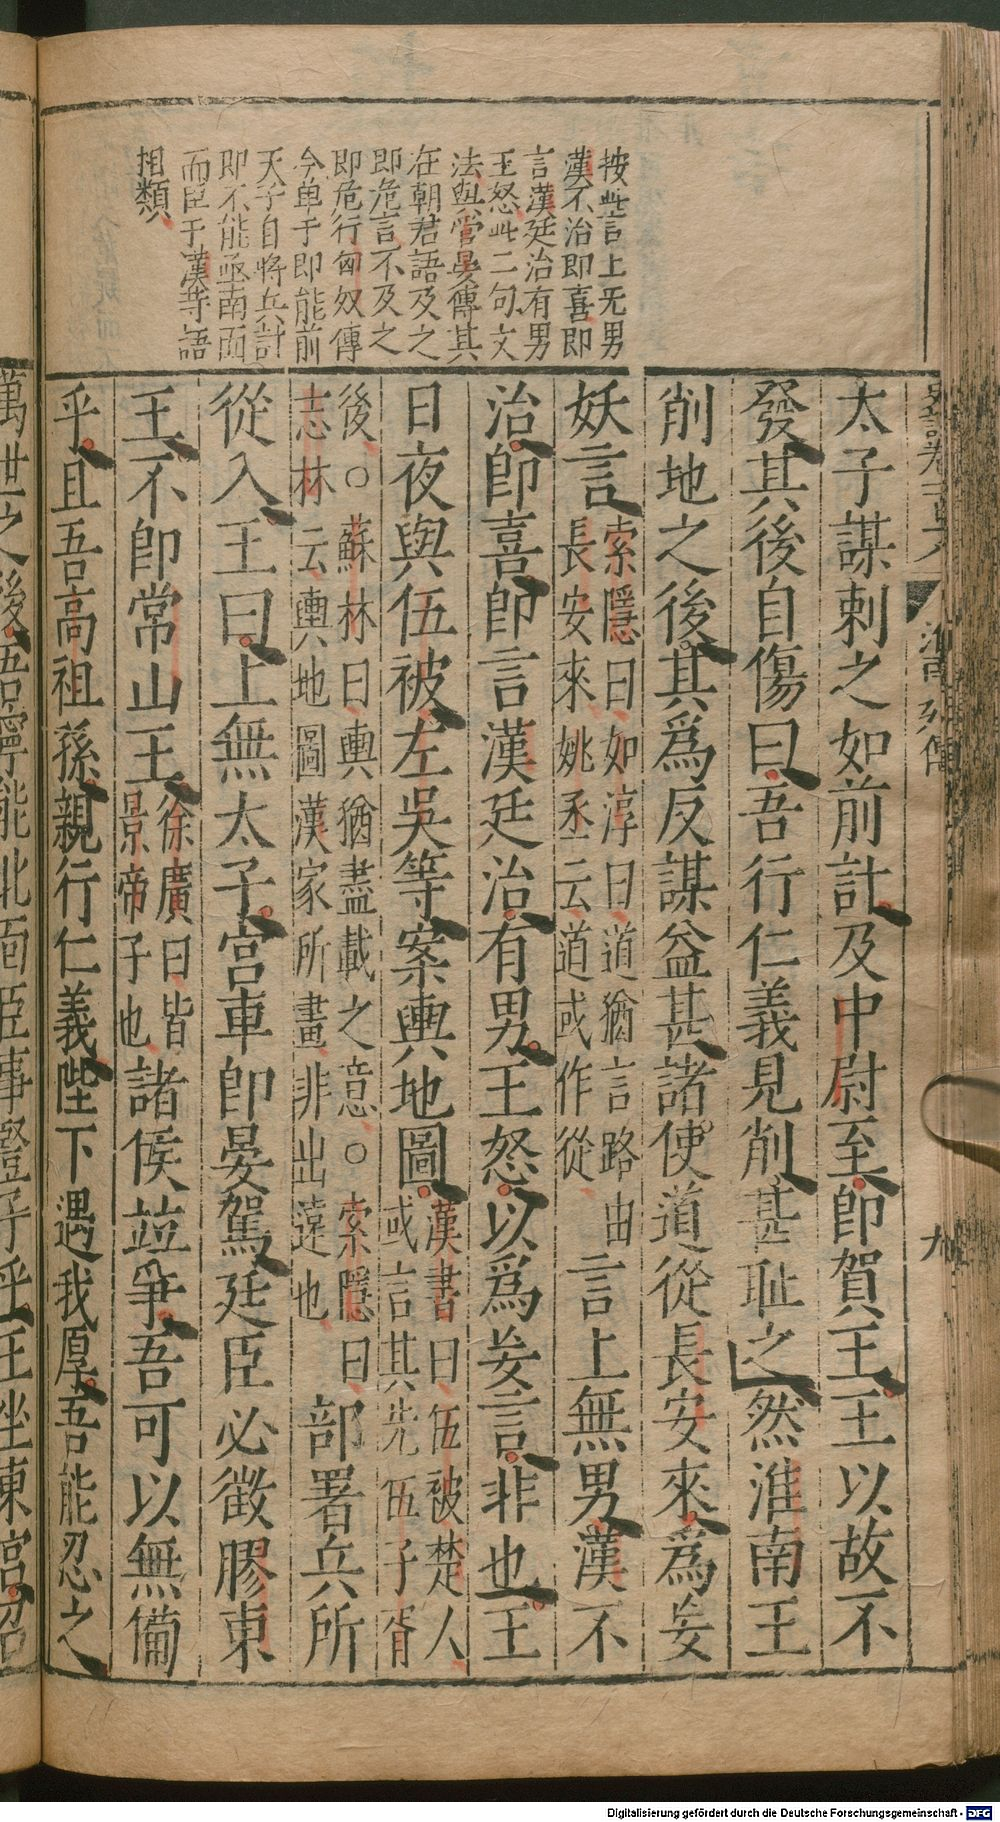 按此言上无男
漢不治即喜即
言漢廷治有男
王怒此二句文
法與管晏傳其
在朝君語及之
即危言不及之
即危行匈奴傳
今单于即能前
天子自將兵計
即不能亟南面
而臣于漢等語
相類
淮南列傳
九
太子謀刺之如前計及中尉至卽賀王王以故不
發其後自傷曰吾行仁義見削甚恥之然淮南王
削地之後其爲反謀益甚諸使道從長安來爲妄
妖言
索隱曰如淳曰道猶言路由
長安來姚丞云道或作從
言上無男漢不
治卽喜卽言漢廷治有男王怒以爲妄言非也王
日夜與伍被左吳等案輿地圖
漢書曰伍被楚人
或言其先伍子胥
後○蘇林曰輿猶盡載之意○索隱曰
志林云輿地圖漢家所畫非出遠也
部署兵所
從入王曰上無太子宮車卽晏駕廷臣必徵膠東
王不卽常山王
徐廣曰皆
景帝子也
諸侯竝爭吾可以無備
乎且吾高祖孫親行仁義陛下遇我厚吾能忍之
萬世之後吾寧能北面臣事豎子乎王坐東宮召
Digitalisierung gefördert durch die Deutsche Forschungsgemeinschaft - DFG